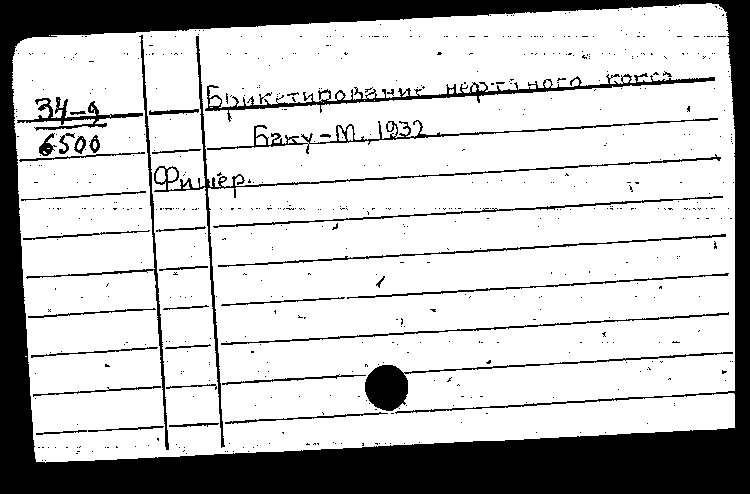 34-9
6500
Брикетирование нефтяного кокса
Баку-М., 1932.
Фишер.